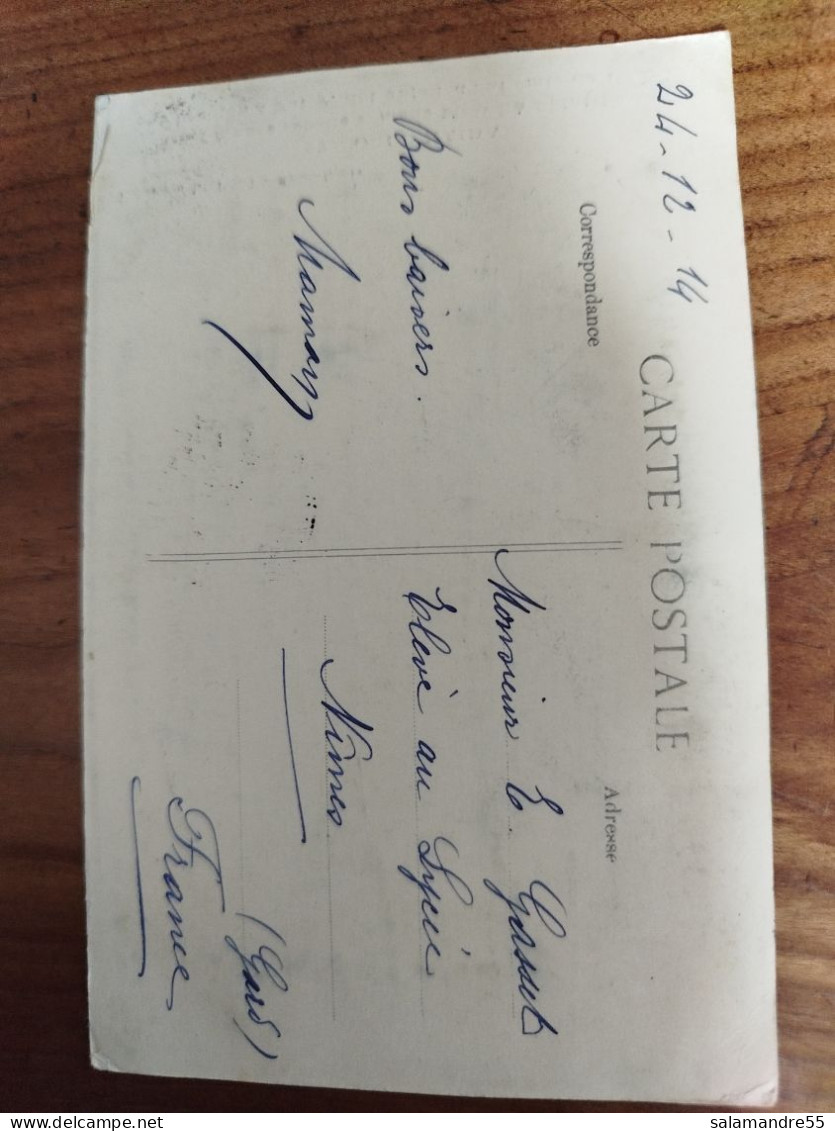 24-12-14
CARTE POSTALE
Correspondance
Adresse
Bons baisers.
Maman
Monsieur E.
Elève au Lycée
Nîmes
(Gard)
France
salamandre55